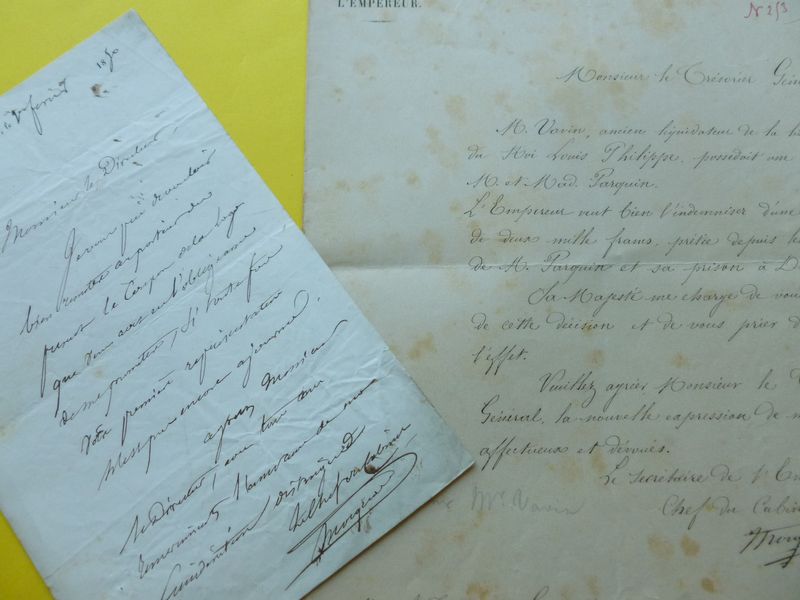 1850
février
Monsieur le Directeur,
Je vous prie de vouloir
bien remettre au porteur du
présent le Coupon de la loge
que vous avez eu l'obligeance
de me promettre, si toutefois
votre première représentation
n'est pas encore ajournée.
agréez Monsieur
le Directeur, avec tous mes
remerciements l'assurance de ma
Considération distinguée
Le chef du Cabinet
L'EMPEREUR.
N 253
Monsieur le Trésorier Géné
M. Vavin, ancien liquidateur de la li
du Roi Louis Philippe, possédait une
M. et Mad. Parquin.
L'Empereur veut bien l'indemniser d'une
de deux mille francs, prêtée depuis le
de M. Parquin et sa prison à D
Sa Majesté me charge de vou
de cette décision et de vous prier d
l'effet.
Veuillez agréer Monsieur le
Général, la nouvelle expression de m
affectueux et dévoués.
Le Secrétaire de l'Em
Chef du Cabin
Mr. Vavin